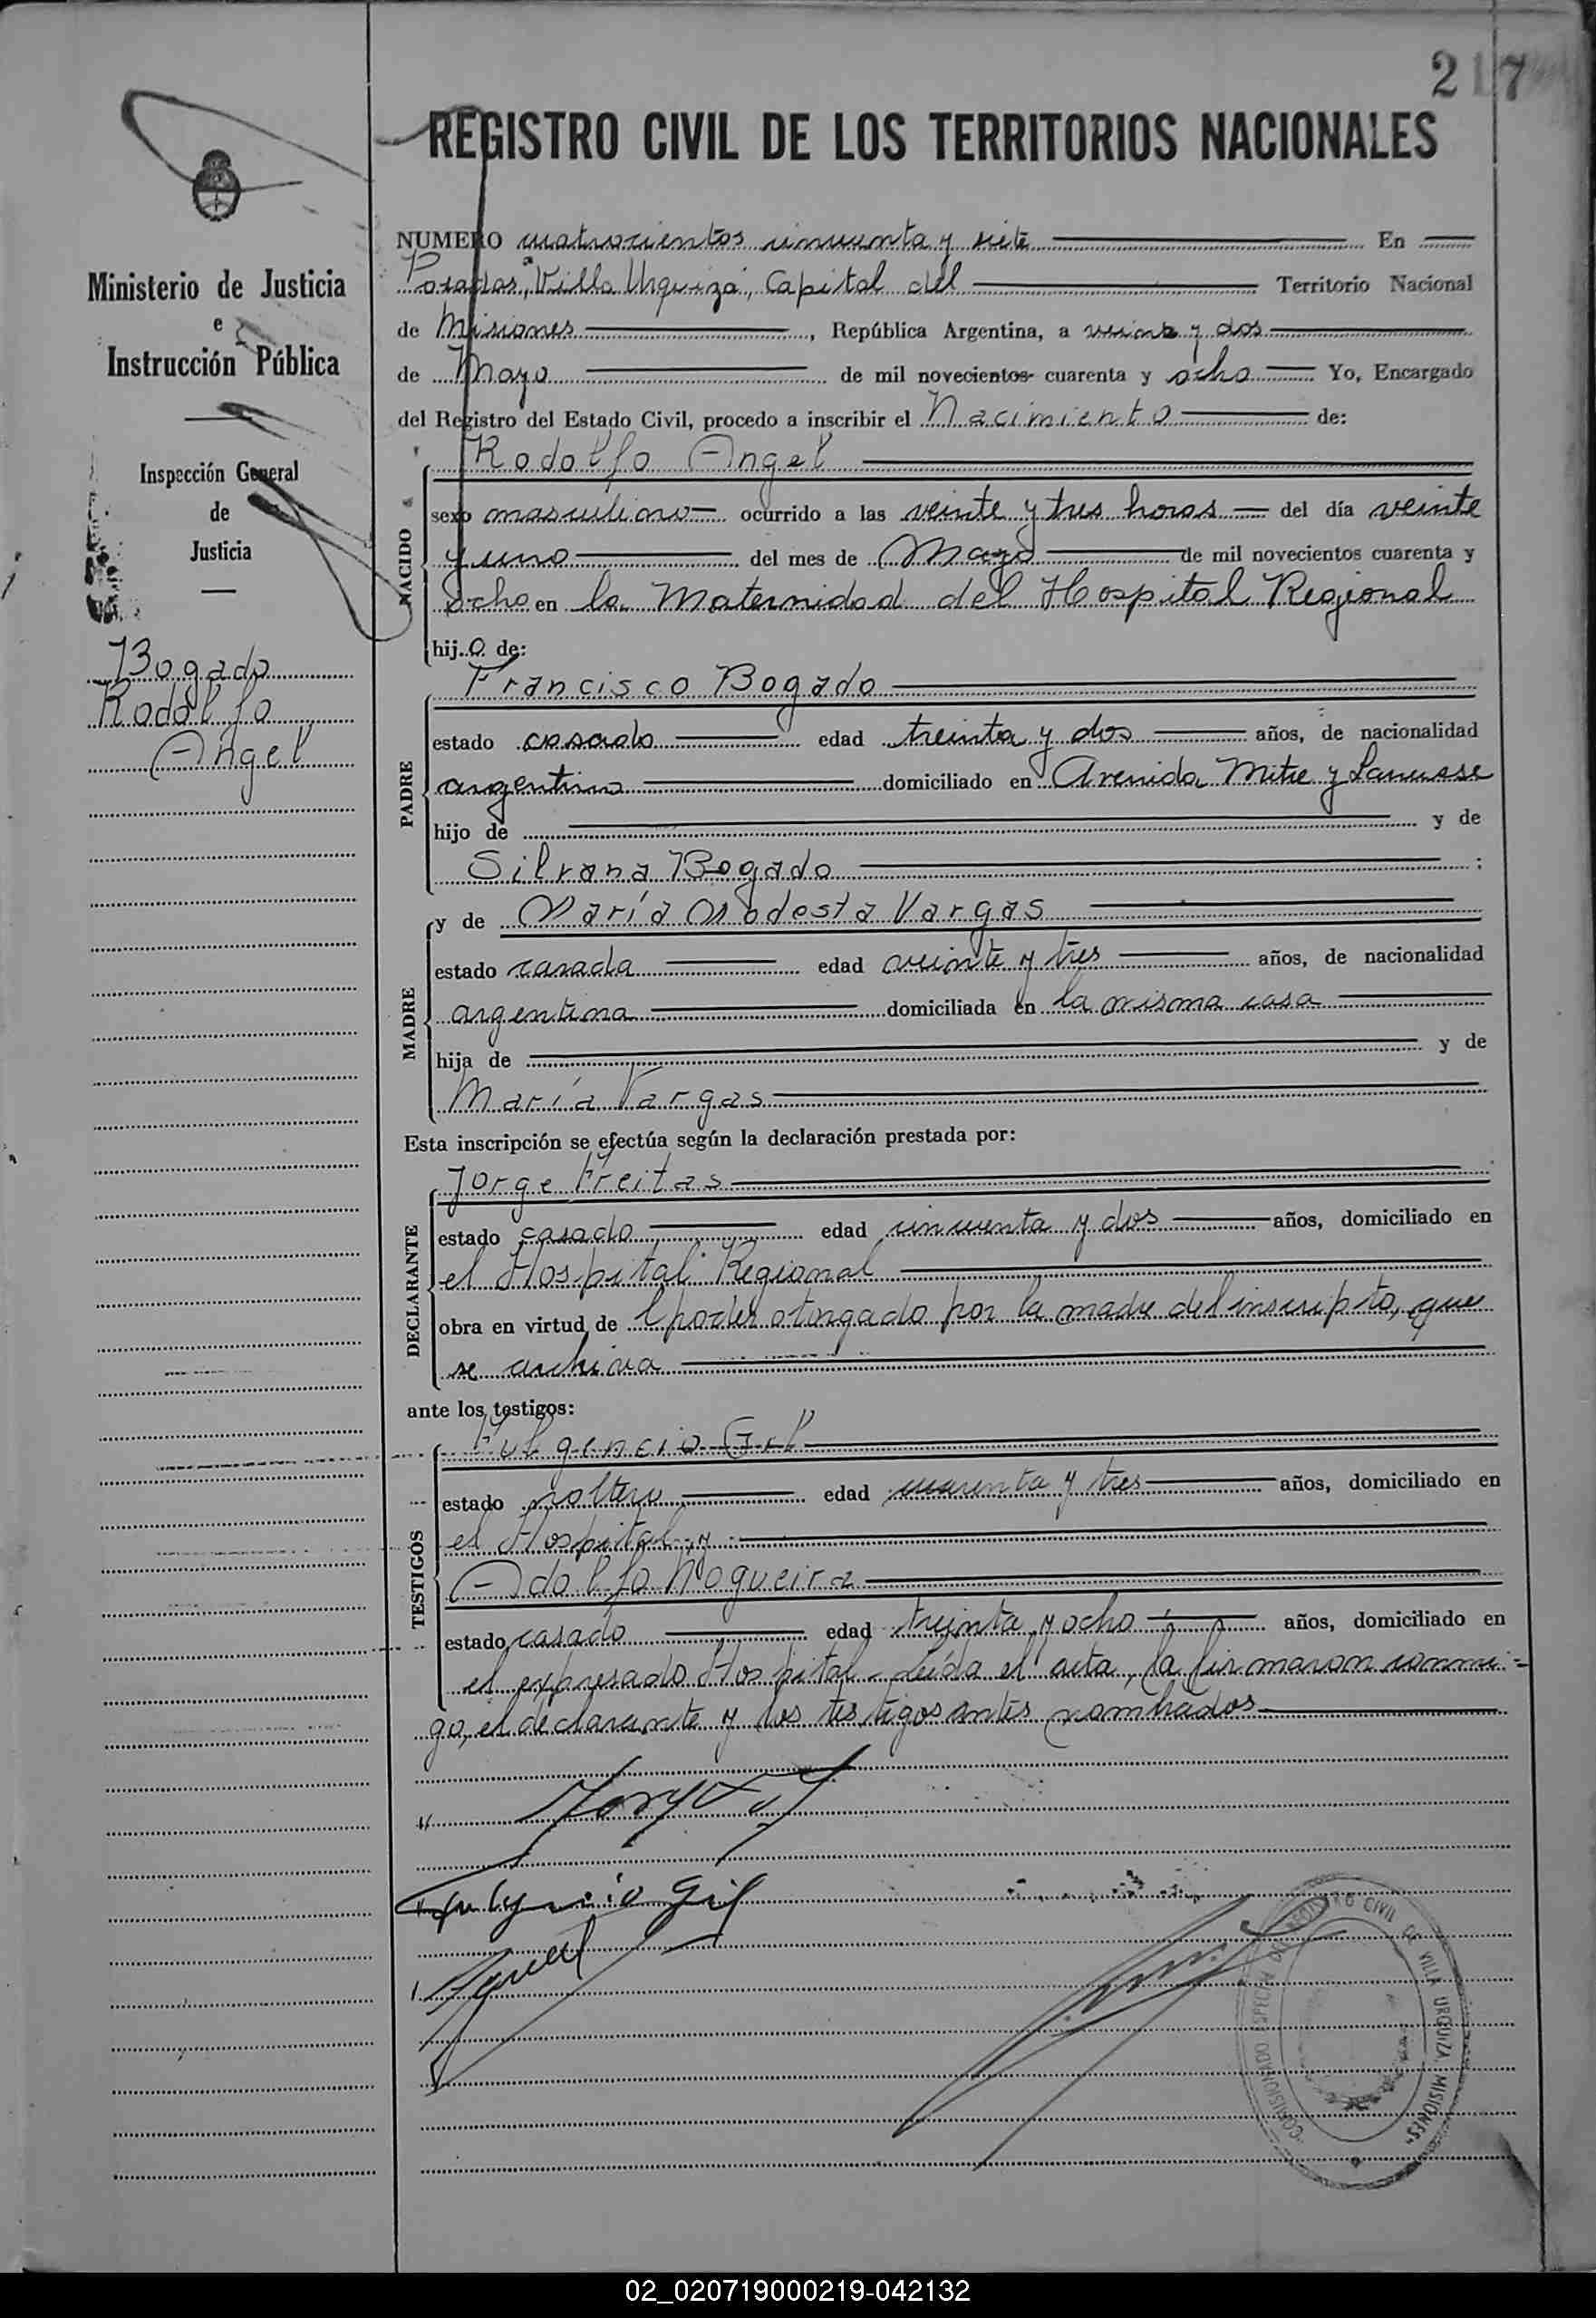 217
REGISTRO CIVIL DE LOS TERRITORIOS NACIONALES
Ministerio de Justicia
e
Instrucción Pública
Inspección General
de
Justicia
Bogado
Rodolfo
Angel
NUMERO cuatrocientos cincuenta y siete En
Posadas, "Villa Urquiza", Capital del Territorio Nacional
de Misiones, República Argentina, a veinte y dos
de Mayo de mil novecientos cuarenta y ocho Yo, Encargado
del Registro del Estado Civil, procedo a inscribir el Nacimiento de:
NACIDO
Rodolfo Angel
sexo masculino ocurrido a las veinte y tres horas del día veinte
y uno del mes de Mayo de mil novecientos cuarenta y
ocho en la Maternidad del Hospital Regional
hijo de:
PADRE
Francisco Bogado
estado casado edad treinta y dos años, de nacionalidad
argentino domiciliado en Avenida Mitre y Lanusse
hijo de y de
Silvana Bogado ;
MADRE
y de María Modesta Vargas
estado casada edad veinte y tres años, de nacionalidad
argentina domiciliada en la misma casa
hija de y de
María Vargas
Esta inscripción se efectúa según la declaración prestada por:
DECLARANTE
Jorge Freitas
estado casado edad cincuenta y dos años, domiciliado en
el Hospital Regional
obra en virtud de l poder otorgado por la madre del inscripto, que
se archiva
ante los testigos:
TESTIGOS
Fulgencio Gil
estado soltero edad cuarenta y tres años, domiciliado en
el Hospital y
Adolfo Nogueira
estado casado edad treinta y ocho años, domiciliado en
el expresado Hospital - Leída el acta, la firmaron conmi=
go, el declarante y los testigos antes nombrados
Fulgencio Gil
COMISIONADO ESPECIAL DEL REGISTRO CIVIL DE VILLA URQUIZA MISIONES
02_020719000219-042132